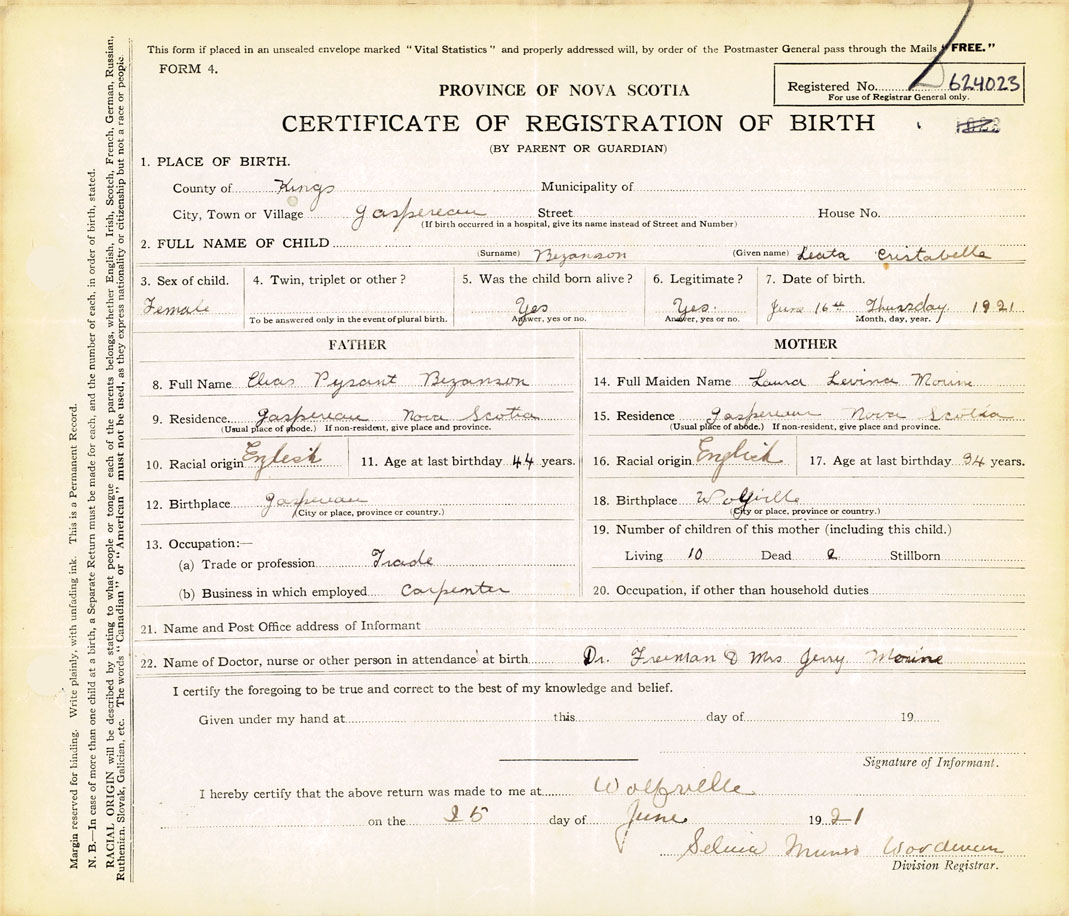 This form if placed in an unsealed envelope marked "Vital Statistics" and properly addressed will, by order of the Postmaster General pass through the Mails "FREE."
FORM 4.
Registered No. 624023
For use of Registrar General only.
PROVINCE OF NOVA SCOTIA
CERTIFICATE OF REGISTRATION OF BIRTH
(BY PARENT OR GUARDIAN)
1. PLACE OF BIRTH.
County of Kings Municipality of
City, Town or Village Gaspereau Street House No.
(If birth occurred in a hospital, give its name instead of Street and Number)
2. FULL NAME OF CHILD (Surname) Bezanson (Given name) Leata Cristabelle
3. Sex of child. 4. Twin, triplet or other? 5. Was the child born alive? 6. Legitimate? 7. Date of birth.
Female Yes Yes. June 16th Thursday 1921
To be answered only in the event of plural birth. Answer, yes or no. Answer, yes or no. Month, day, year.
FATHER
8. Full Name Elias Pysant Bezanson
9. Residence Gaspereau Nova Scotia
(Usual place of abode.) If non-resident, give place and province.
10. Racial origin English 11. Age at last birthday 44 years.
12. Birthplace Gaspereau
(City or place, province or country.)
13. Occupation:—
(a) Trade or profession Trade
(b) Business in which employed Carpenter
MOTHER
14. Full Maiden Name Laura Levina Morine
15. Residence Gaspereau Nova Scotia
(Usual place of abode.) If non-resident, give place and province.
16. Racial origin English 17. Age at last birthday 34 years.
18. Birthplace Wolfville
(City or place, province or country.)
19. Number of children of this mother (including this child.)
Living 10 Dead 2 Stillborn
20. Occupation, if other than household duties
21. Name and Post Office address of Informant
22. Name of Doctor, nurse or other person in attendance at birth Dr. Freeman & Mrs Jerry Morine
I certify the foregoing to be true and correct to the best of my knowledge and belief.
Given under my hand at this day of 19
Signature of Informant.
I hereby certify that the above return was made to me at Wolfville
on the 25 day of June 1921
Selina Munro Woodman
Division Registrar.
Margin reserved for binding. Write plainly, with unfading ink. This is a Permanent Record.
N. B.—In case of more than one child at a birth, a Separate Return must be made for each, and the number of each, in order of birth, stated.
RACIAL ORIGIN will be described by stating to what people or tongue each of the parents belongs, whether English, Irish, Scotch, French, German, Russian,
Ruthenian, Slovak, Galician, etc. The words "Canadian" or "American" must not be used, as they express nationality or citizenship but not a race or people.